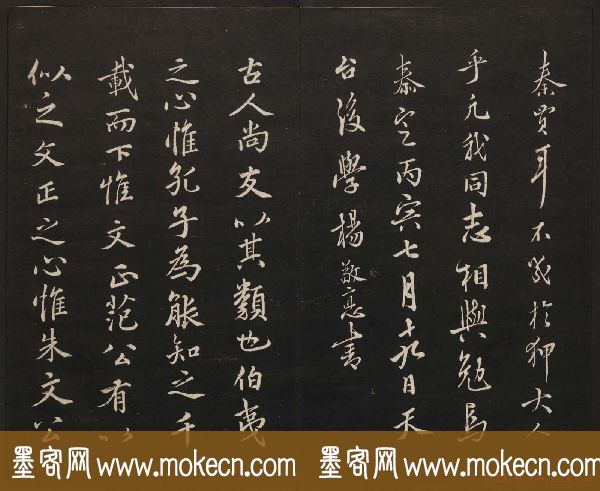 秦賈耳不幾於狎大人
乎凢我同志相與勉焉
泰定丙寅七月十九日天
台後學楊敬悳書
古人尚友以其類也伯夷
之心惟孔子為能知之千
載而下惟文正范公有以
似之文正之心惟朱文公
墨客网 www.mokecn.com 墨客网 www.mokecn.com